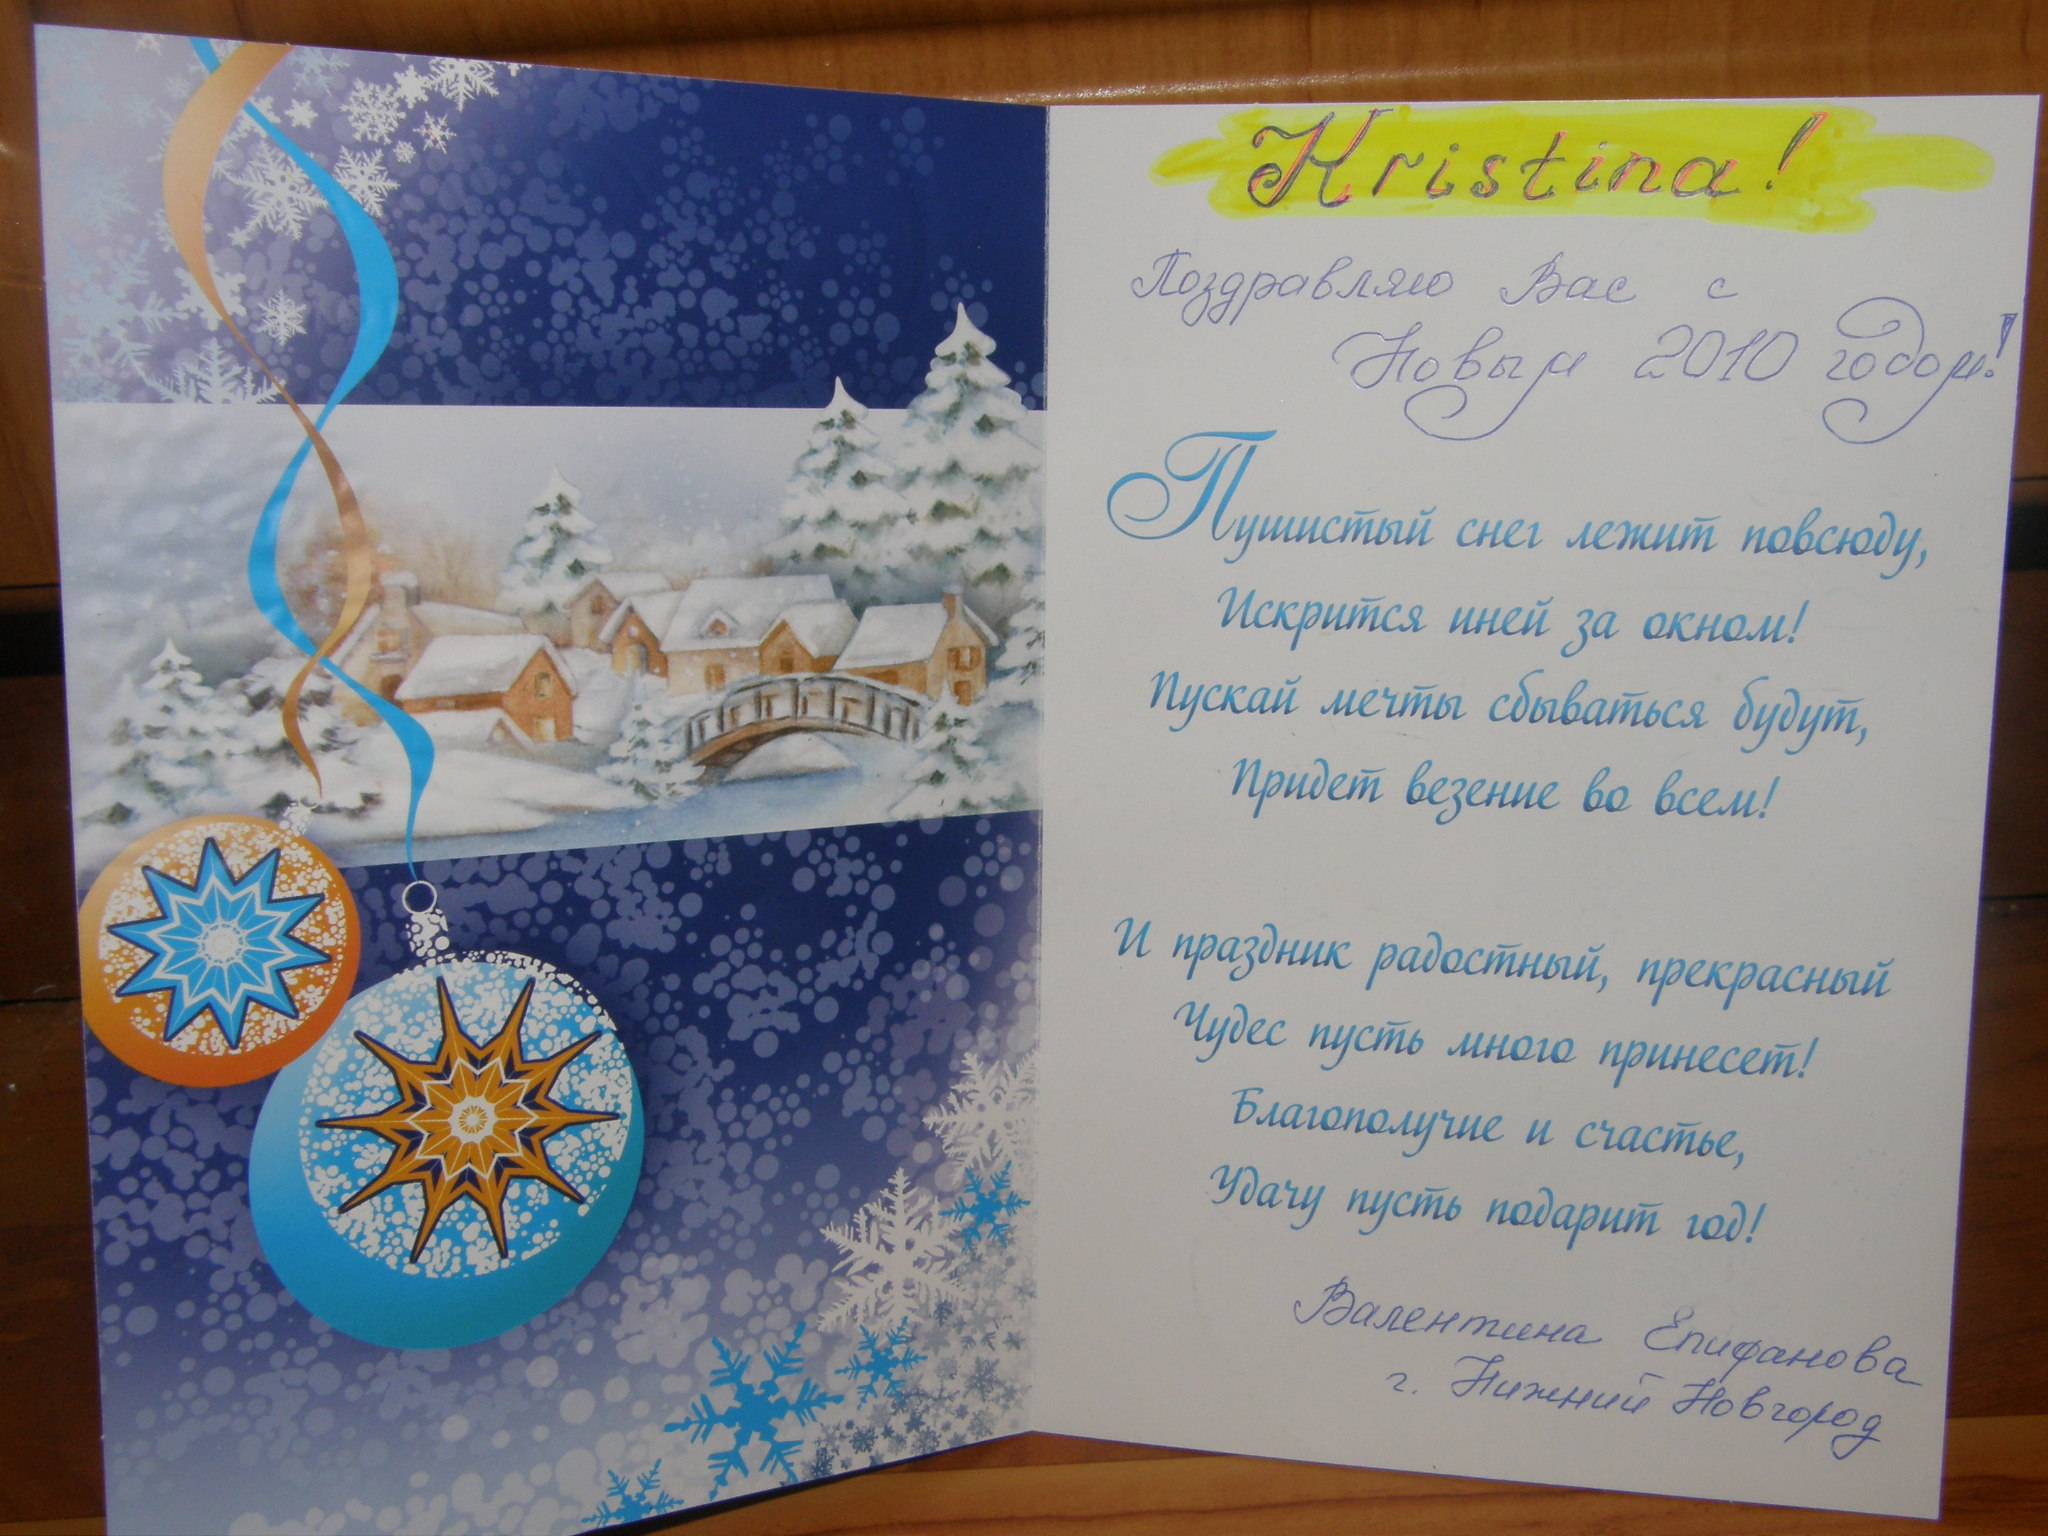 Kristina!
Поздравляю Вас с
Новым 2010 годом!
Пушистый снег лежит повсюду,
Искрится иней за окном!
Пускай мечты сбываться будут,
Придет везение во всем!
И праздник радостный, прекрасный
Чудес пусть много принесет!
Благополучие и счастье,
Удачу пусть подарит год!
Валентина Епифанова
г. Нижний Новгород